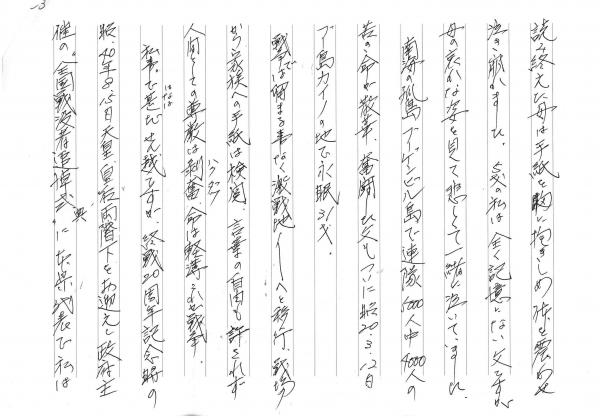 読み終えた母は手紙を胸に抱きしめ体を震わせ
泣き崩れました。5才の私は全く記憶にない父ですが
母の哀れな姿を見て悲しくて一緒に泣いていました。
南海の孤島ブーゲンビル島で連隊5000人中4000人の
若き命が散華、奮闘した父もついに昭20.3.12日
ブ島カイノの地で永眠31才。
戦争では留まる事なく激戦地へ〜へと移行、戦場
から家族への手紙は検閲、言葉の自由も許されず
人間としての尊厳は剥奪、命は軽薄、これぞ戦争。
ハクダツ
私事で甚だせん越ですが、終戦20周年記念時の
はなは
昭.40年8.15日天皇、皇后両陛下をお迎えし政府主
催の“全国戦没者追悼式典”に本県代表で私は